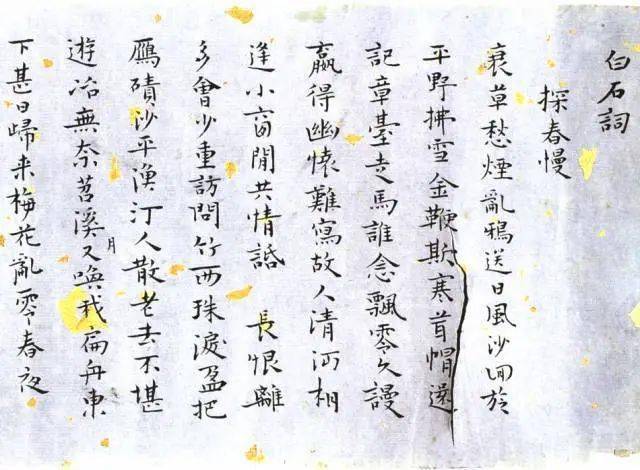 白石詞
探春慢
衰草愁煙亂鴉送日風沙囬旋
平野拂雪金鞭欺寒茸帽還
記章臺走馬誰念飄零久謾
贏得幽懷難寫故人清沔相
逢小窗閒共情話 長恨離
多會少重訪問竹西珠淚盈把
鴈磧沙平漁汀人散老去不堪
遊冶無奈苕溪月又喚我扁舟東
下甚日歸来梅花亂零春夜